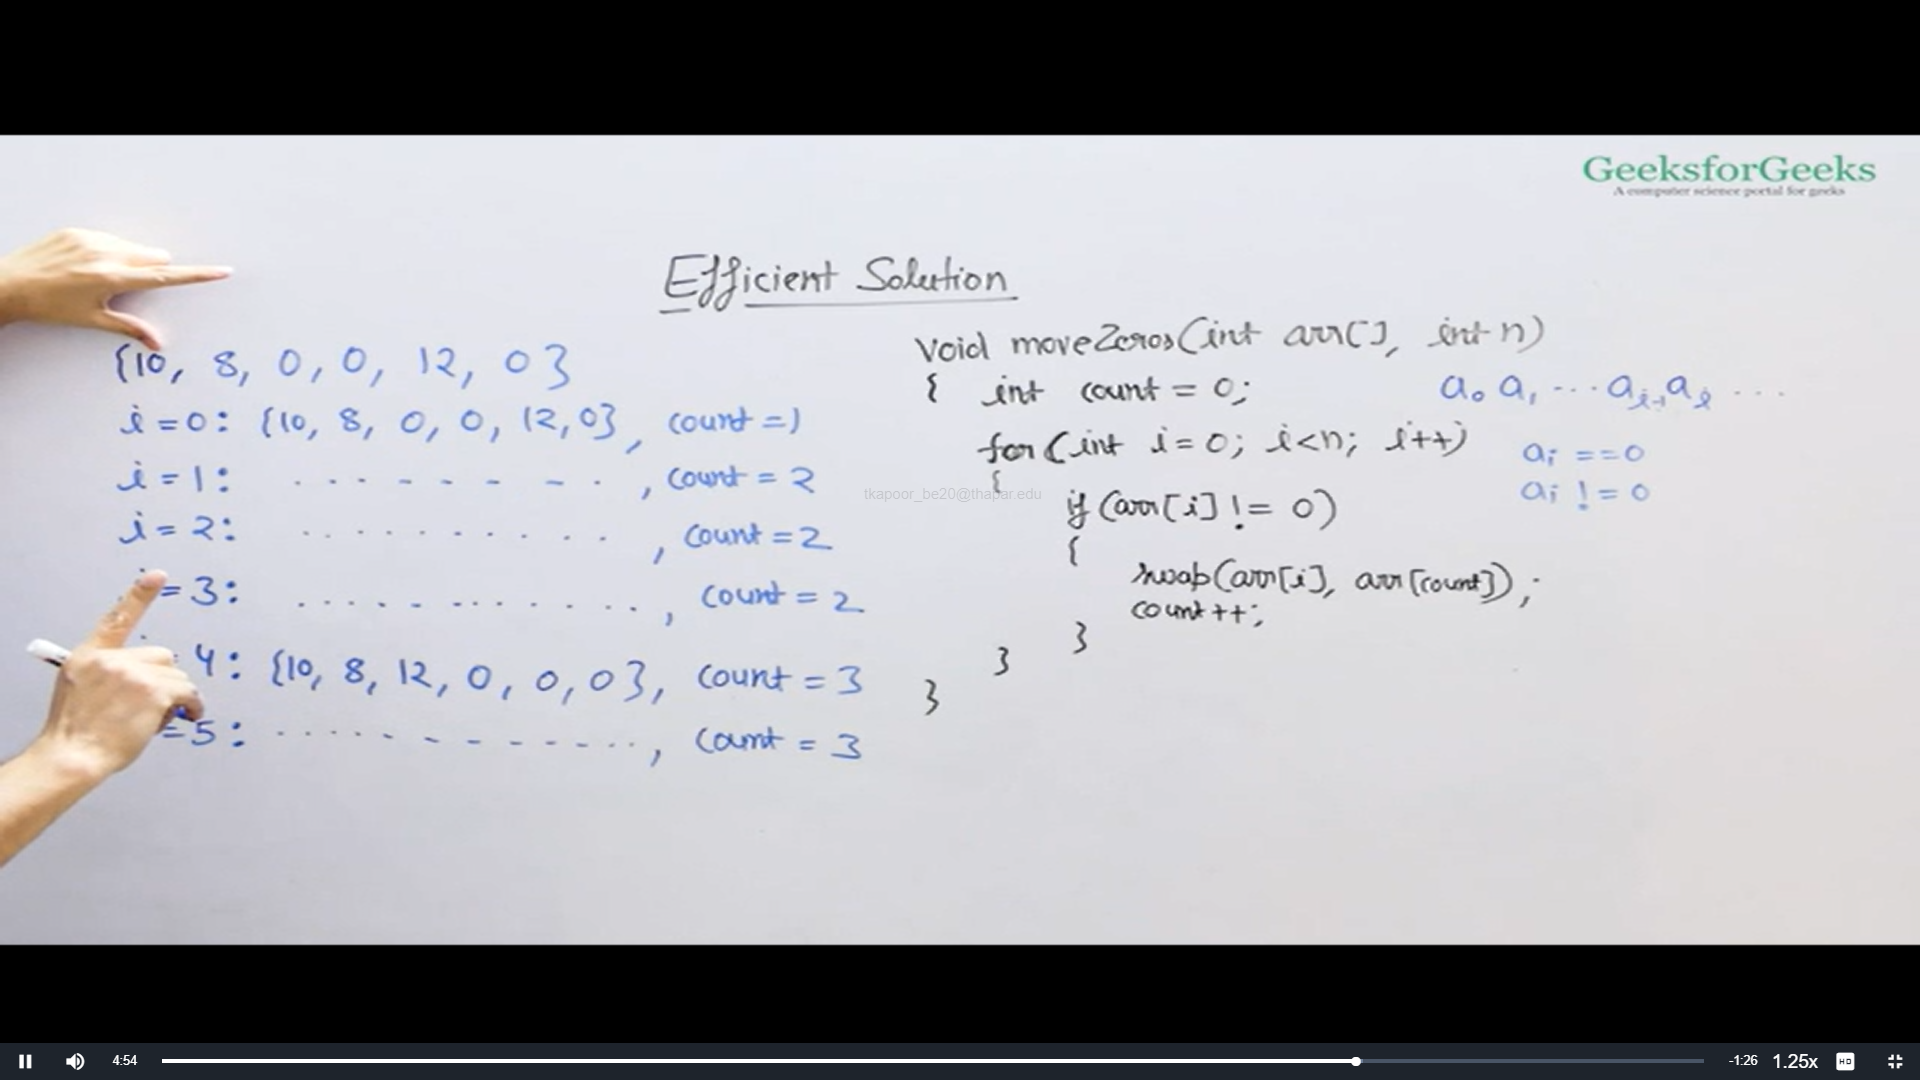 GeeksforGeeks
A computer science portal for geeks
Efficient Solution
{10, 8, 0, 0, 12, 0}
i = 0: {10, 8, 0, 0, 12, 0}, count = 1
i = 1: . . . . . . . . , count = 2
i = 2: . . . . . . . . . . , count = 2
= 3: . . . . . . . . . . . . , count = 2
4: {10, 8, 12, 0, 0, 0}, count = 3
= 5: . . . . . . . . . . . . . , count = 3
void moveZeros(int arr[], int n)
{ int count = 0;
for (int i = 0; i < n; i++)
{
if (arr[i] != 0)
{
swap(arr[i], arr[count]);
count++;
}
}
}
a0 a1 ... ai-1 ai ...
ai == 0
ai != 0
tkapoor_be20@thapar.edu
4:54
-1:26
1.25x
HD